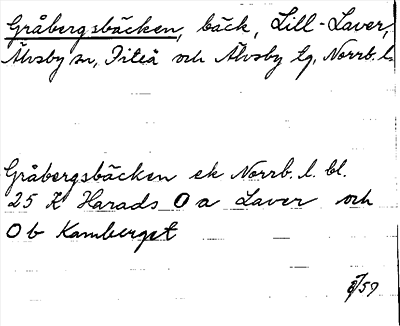 Gråbergsbäcken, bäck, Lill-Laver,
Älvsby sn, Piteå och Älvsby tg, Norrb. l.
Gråbergsbäcken ek Norrb. l. bl.
25 K Harads O a Laver och
O b Kamberget
/59